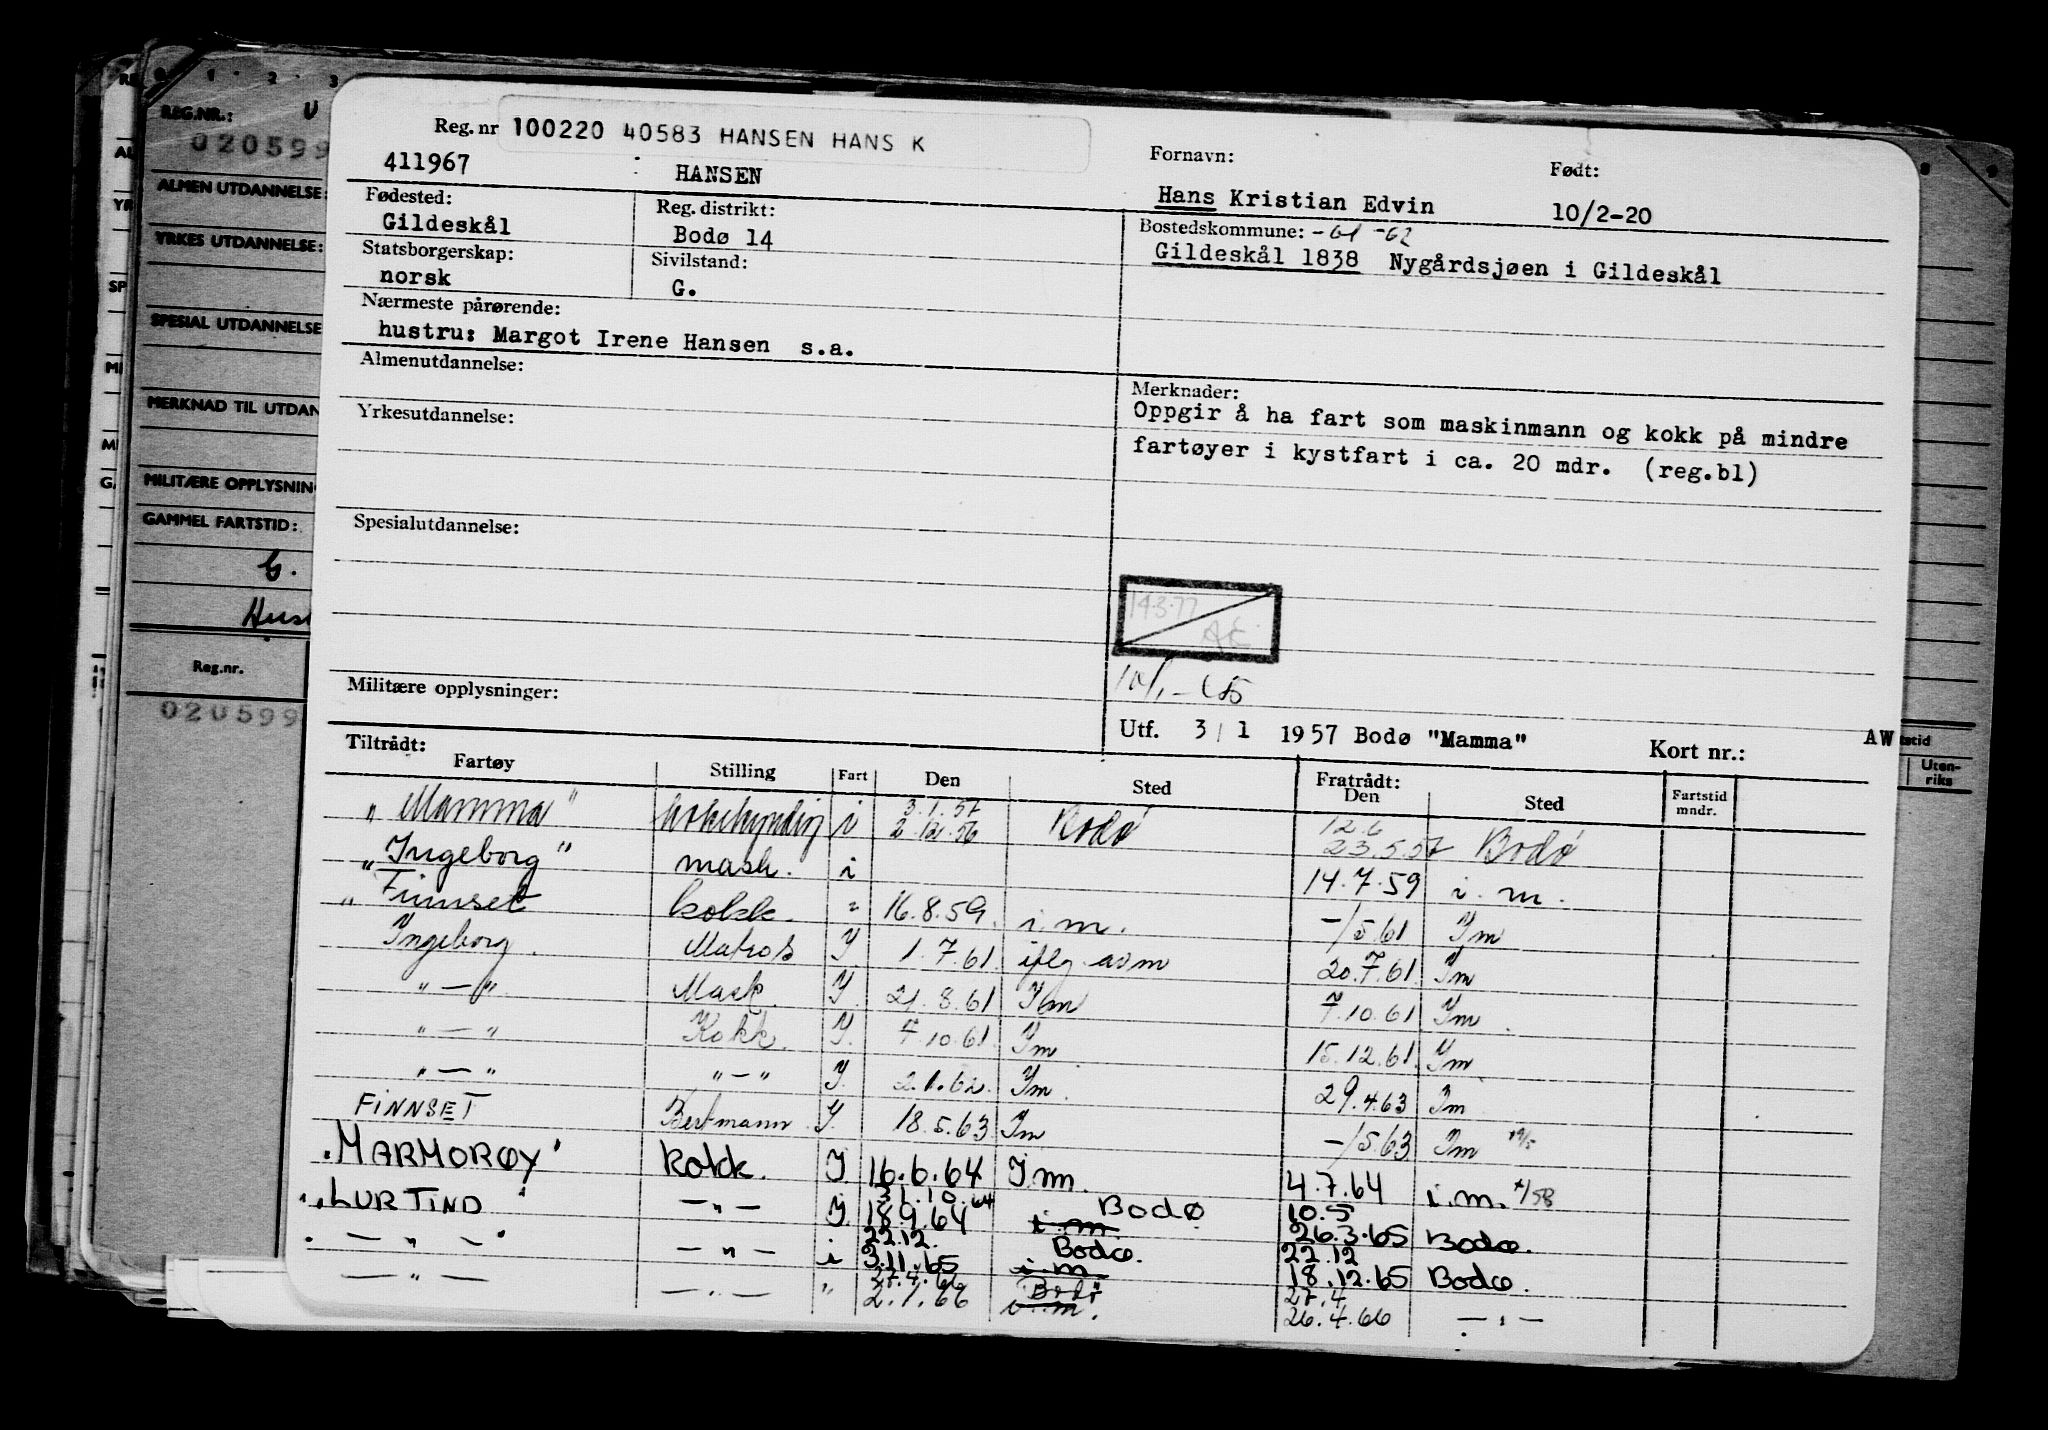 REG.NR.: U
020599
ALMEN UTDANNELSE:
YRKES UTDANNELSE:
SPESIAL UTDANNELSE
MERKNAD TIL UTDAN
MILITÆRE OPPLYSNIN
GAMMEL FARTSTID:
G.
Reg.nr.
020599
Reg. nr 100220 40583 HANSEN HANS K
411967 HANSEN
Fornavn: Født:
Hans Kristian Edvin 10/2-20
Fødested: Reg. distrikt:
Gildeskål Bodø 14
Bostedskommune: -61 -62
Gildeskål 1838 Nygårdsjøen i Gildeskål
Statsborgerskap: Sivilstand:
norsk G.
Nærmeste pårørende:
hustru: Margot Irene Hansen s.a.
Almenutdannelse:
Yrkesutdannelse:
Spesialutdannelse:
Militære opplysninger:
Merknader:
Oppgir å ha fart som maskinmann og kokk på mindre
fartøyer i kystfart i ca. 20 mdr. (reg.bl)
14.3.77
AE
Utf. 3/1 1957 Bodø "Mamma" Kort nr.: AW
Tiltrådt: Fratrådt:
Fartøy Stilling Fart Den Sted Den Sted Fartstid mndr.
3.1.57 12.6
"Mamma" i 2.12.56 Bodø 23.5.57 Bodø
"Ingeborg" mask. i 14.7.59 i.m.
"Finnset kokk. " 16.8.59. i.m. -/5.61 Im
Ingeborg. Matros I. 1.7.61. iflg. avm 20.7.61. Im
"-" Mask. I. 21.8.61 Im 7.10.61 Im
"-" Kokk. I. 7.10.61. Im 15.12.61. Im
"-" "-" I. 2.1.62. Im. 29.4.63 Im
FINNSET Bestmann I. 18.5.63 Im -/5.63 Im
"MARMORØY" kokk. I 16.6.64 I.m. 4.7.64 i.m.
31.10.64 10.5
"LURTIND" -"- I. 18.9.64 i.m Bodø 26.3.65 Bodø.
22.12. Bodø. 22.12
-"- -"- i 3.11.65 i.m 18.12.65 Bodø.
27.4.66 Bodø 27.4
-"- -"- " 2.1.66 i.m. 26.4.66 -"-